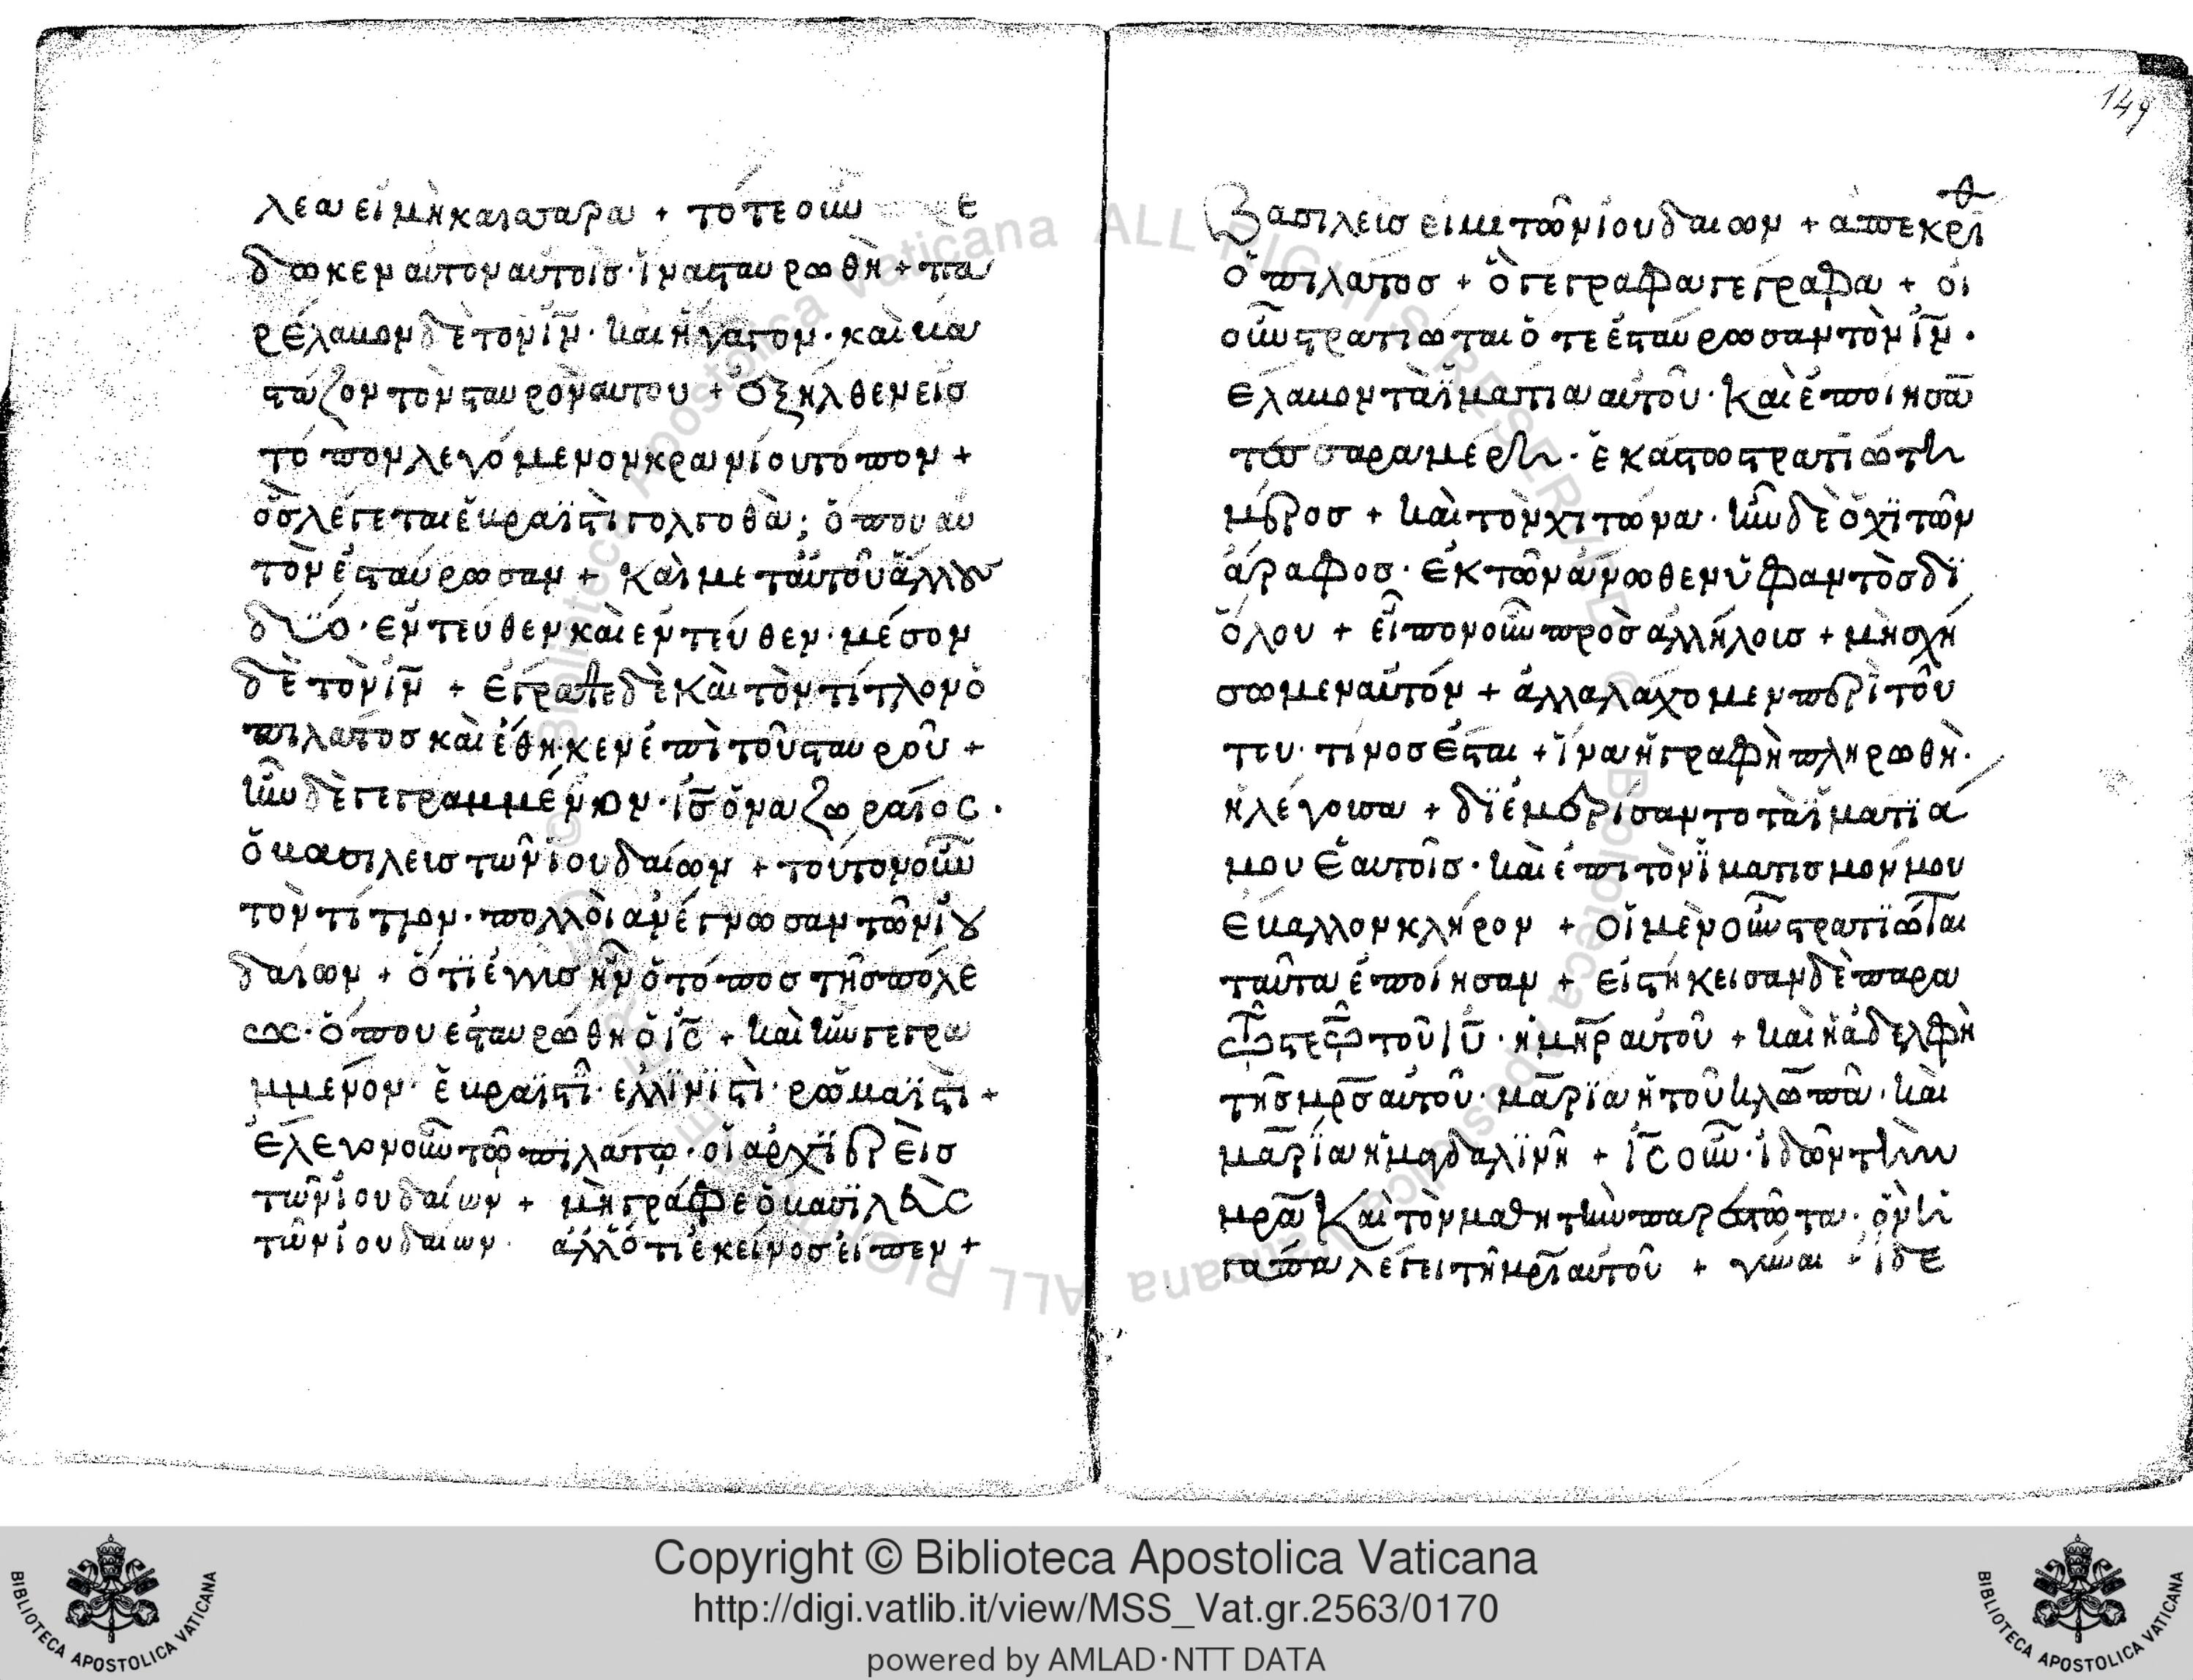 λέα εἰ μὴ καίσαρα + τότε οὖν
δωκεν αυτον αυτοῖσ· ἵνα σταυρωθὴ + πα
ρέλαβον δὲ τον ἰν̅· καὶ ἤγαγον· καὶ βα
στάζον τὸν σταυρὸν αυτου + ἐξῆλθεν εἰσ
τὸπον λεγόμενον κρανίου τόπον +
ὃσ λέγεται ἑβραϊστὶ γολγοθὰ; ὅπου αυ
τὸν ἐσταύρωσαν + Καὶ μετ αὐτοῦ ἄλλου
δϋο· ἐντεύθεν και εντεύθεν· μέσον
δὲ τὸν ἰν̅ + Εγραψε δὲ Καὶ τὸν τίτλον ὁ
πιλατοσ καὶ ἔθηκεν ἐπὶ τοῦ σταυροῦ +
ἦν δὲ γεγραμμένον· ἰσ̅ ὁ ναζωραῖος.
ὁ βασιλεισ τῶν ἰουδαίων + τοῦτον οὖν
τὸν τίτλον· πολλοὶ ἀνέγνωσαν τῶν ἰου
δαίων + ὅτι ἐγγισ ἦν ὁ τόποσ τῆσ πόλε
ως· ὅπου εσταυρώθη ὁ ἰς̅ + καὶ ἦν γεγρα
μμένον· ἑβραϊστὶ· ἑλλϊνϊστὶ· ρωμαϊστὶ +
Ἐλεγον οὖν τῶ πιλάτω· οἱ αρχϊερεῖσ
τῶν ἰουδαίων + μὴ γράφε ὁ βασϊλεὺς
τῶν ἰουδαίων· ἀλλ ὅτι ἐκεῖνοσ εἶπεν +
149
Βασιλεισ εἰμι τῶν ἰουδαιων + ἀπεκρίθ
ὁ πιλατοσ + ὃ γεγραφα γεγραφα + οἱ
οὖν στρατιῶται ὅτε ἐσταύρωσαν τὸν ἰν̅.
ἐλαβον τὰ ἱμάτια αὐτοῦ· Καὶ ἐποίησα̅
τέσσαρα μέρη· ἑκάστο στρατιώτη
μέροσ + Καὶ τὸν χιτῶνα· ἦν δὲ ὁ χϊτῶν
ἄραφοσ· ἐκ τῶν ἄνωθεν ὑφαντὸσ δϊ
ὅλου + εἶπον οὖν πρὸσ ἀλλήλοισ + μὴ σχή
σωμεν αὐτόν + ἀλλα λάχομεν περὶ τοῦ
του· τίνοσ ἔσται + ἵνα ἡ γραφὴ πληρωθὴ·
ἡ λέγουσα + δϊεμερίσαντο τὰ ἱματϊά
μου ἑαυτοῖσ· καὶ ἐπι τὸν ἱματισμόν μου
ἐβαλλον κλήρον + Οἱ μὲν οὖν στρατϊῶται
ταῦτα ἐποίησαν + Εἱστήκεισαν δὲ παρα
τῶ στρῶ τοῦ ιυ̅· ἡ μηρ̅ αὐτοῦ + καὶ ἡ ἀδελφὴ
τῆσ μρσ̅ αὐτοῦ· μαρϊα ἡ τοῦ κλωπᾶ· καὶ
μαρϊα ἡ μαγδαλϊνὴ + ἰς̅ οὖν· ἰδῶν τὴν
μρα̅ Καὶ τὸν μαθητὴν παρεστῶτα· ὃν ἠ
γάπα λέγει τῆ μρι̅ αὐτοῦ + γύναι + ἴδε
Copyright © Biblioteca Apostolica Vaticana
http://digi.vatlib.it/view/MSS_Vat.gr.2563/0170
powered by AMLAD·NTT DATA
BIBLIOTECA APOSTOLICA VATICANA
BIBLIOTECA APOSTOLICA VATICANA